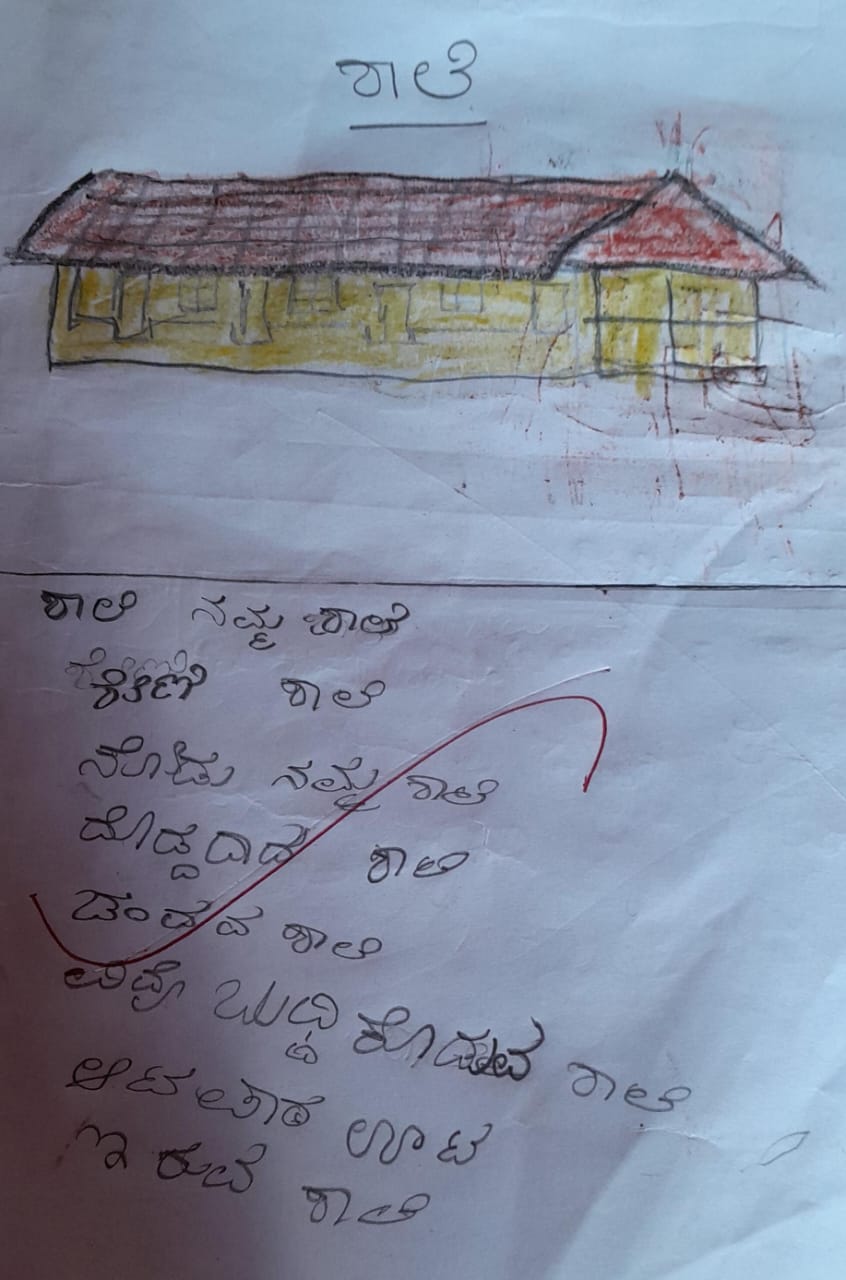 ಶಾಲೆ
ಶಾಲೆ ನಮ್ಮ ಶಾಲೆ
ಶಾಲೆ
ನೋಡು ನಮ್ಮ ಶಾಲೆ
ದೊಡ್ಡದಾದ ಶಾಲೆ
ಚಂದದ ಶಾಲೆ
ಬುದ್ಧಿ ಕೊಡುವ ಶಾಲೆ
ಆಟ ಪಾಠ ಊಟ
ಇರುವ ಶಾಲೆ